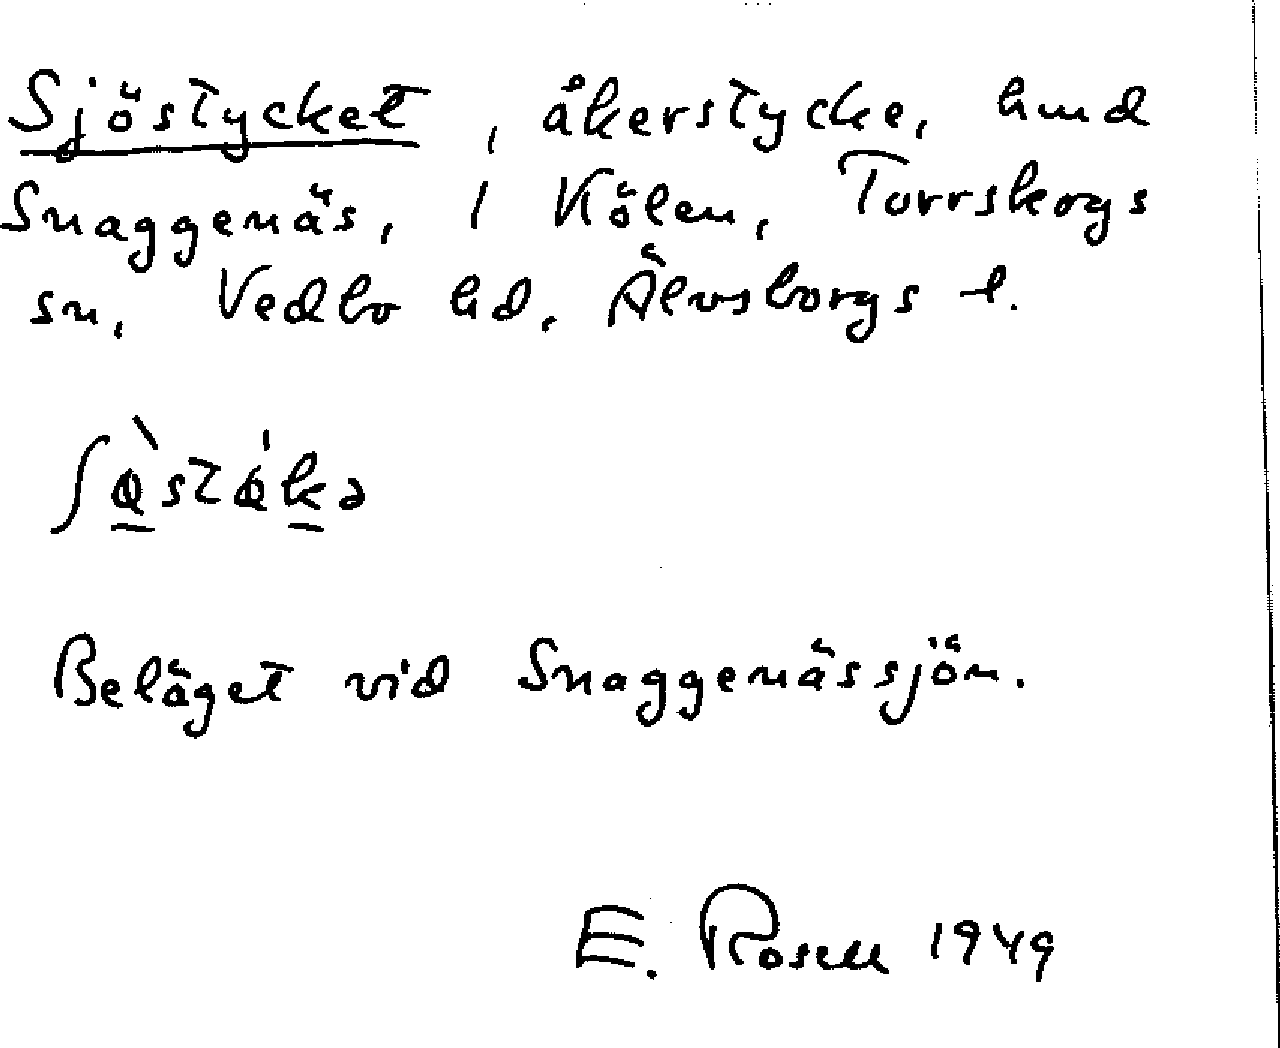 Sjöstycket, åkerstycke, hmd
Snaggenäs, 1 Kölen, Torrskogs
sn, Vedbo hd, Älvsborgs l.
Beläget vid Snaggenässjön.
E. Rosell 1949